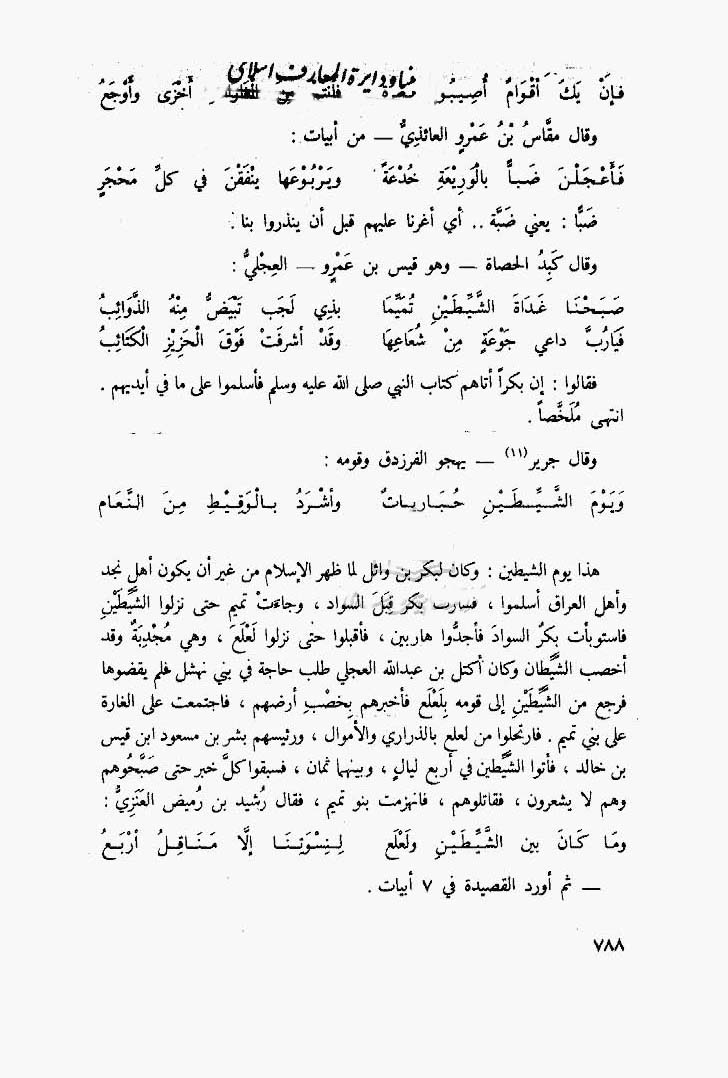 بنیاد دایرة المعارف اسلامی
فإنْ يَكُ أقْوَامٌ أُصِيبُوا فأنتم من أخْرَى وأوْجَعُ
وقال مقَّاسُ بْنُ عَمْرٍو العائذِيُّ – من أبيات :
فَأَعْجَلْنَ ضَبّاً بالْوَرِيْعَةِ خُدْعَةً ويَرْبُوْعَها ينْفَقْنَ في كلِّ مَحْجَرِ
ضَبًّا : يعني ضَبَّة .. أي أغرنا عليهم قبل أن ينذروا بنا .
وقال كَبِدُ الحصاة – وهو قيس بن عَمْرٍو – العِجْليُّ :
صَبَحْنَا غَدَاةَ الشَّيِّطَيْنِ تُمَيِّمًا بذِي لَجَب تَبْيَضُّ مِنْهُ الذَّوَائِبُ
فَيَارُبَّ داعي جَوْعَةٍ مِنْ شُعَاعِهَا وقَدْ أشرفَتْ فَوْقَ الْحَزِيْزِ الْكَتَائِبُ
فقالوا : إن بكراً أتاهم كتاب النبي صلى الله عليه وسلم فأسلموا على ما في أيديهم .
انتهى مُلَخَّصاً .
وقال جرير(١١) – يهجو الفرزدق وقومه :
وَيَوْمَ الشَّيِّطَيْنِ حُبَارِيَاتٌ وأشْرَدُ بِالْوَقِيْطِ مِنَ النَّعَام
هذا يوم الشيطين : وكان لبكر بن وائل لما ظهر الإسلام من غير أن يكون أهل نجد
وأهل العراق أسلموا ، فسارت بكر قِبَلَ السواد ، وجاءتْ تميم حتى نزلوا الشَّيِّطَيْنِ
فاستوبأت بكرٌ السوادَ فأجدُّوا هاربين ، فأقبلوا حتى نزلوا لَعْلَعَ ، وهي مُجْدِبَةٌ وقد
أخصب الشَّيِّطان وكان أكتل بن عبدالله العجلي طلب حاجة في بني نهشل فلم يقضوها
فرجع من الشَّيِّطَيْنِ إلى قومه بِلَعْلَع فأخبرهم بِخصْبِ أرضهم ، فاجتمعت على الغارة
على بني تميم . فارتحلوا من لعلع بالذراري والأموال ، ورئيسهم بشر بن مسعود ابن قيس
بن خالد ، فأتوا الشَّيِّطين في أربع ليالٍ ، وبينهما ثمان ، فسبقوا كلَّ خبر حتى صَبَّحُوهم
وهم لا يشعرون ، فقاتلوهم ، فانهزمت بنو تميم ، فقال رُشيد بن رُميض العَنَزِيُّ :
ومَا كَانَ بين الشَّيِّطَيْنِ ولَعْلَع لِنِسْوَتِنَا إلَّا مَنَاقِلُ أرْبَعُ
– ثم أورد القصيدة في ٧ أبيات .
٧٨٨